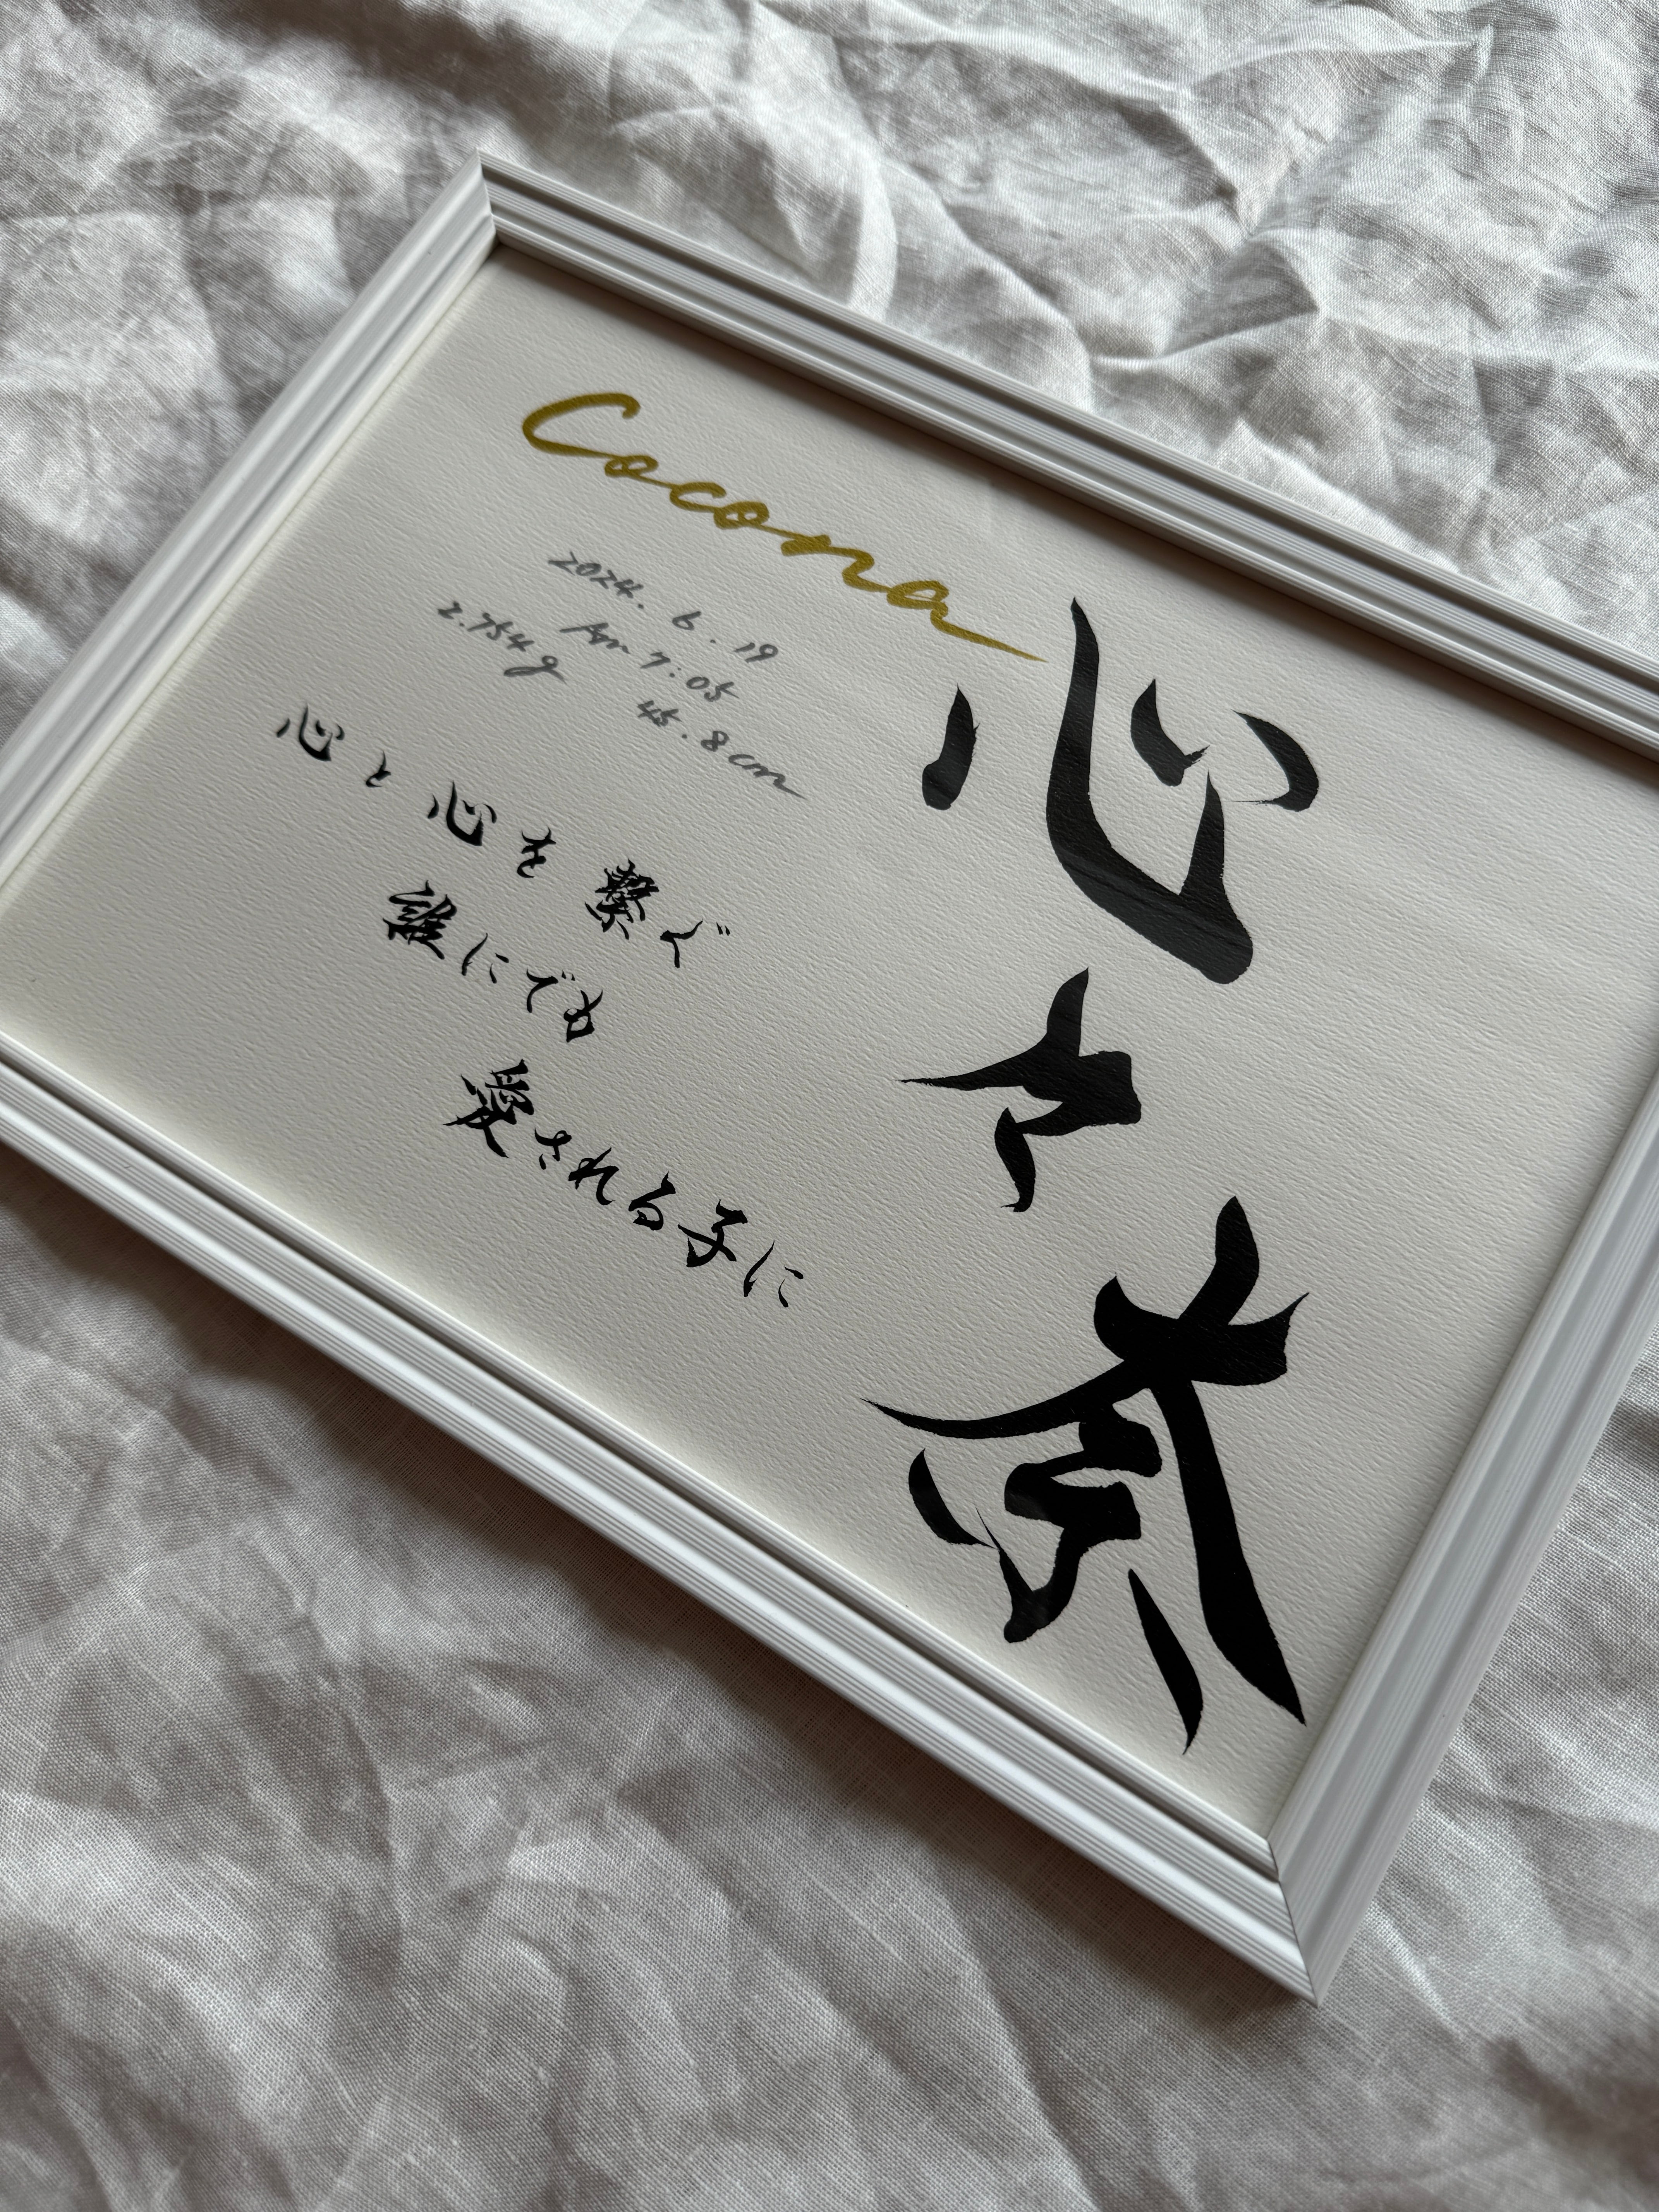 心々奈
Cocona
2024. 6. 19
Am 7:05
2.754g 45.8cm
心と心を繋ぐ
誰にでも
愛される子に